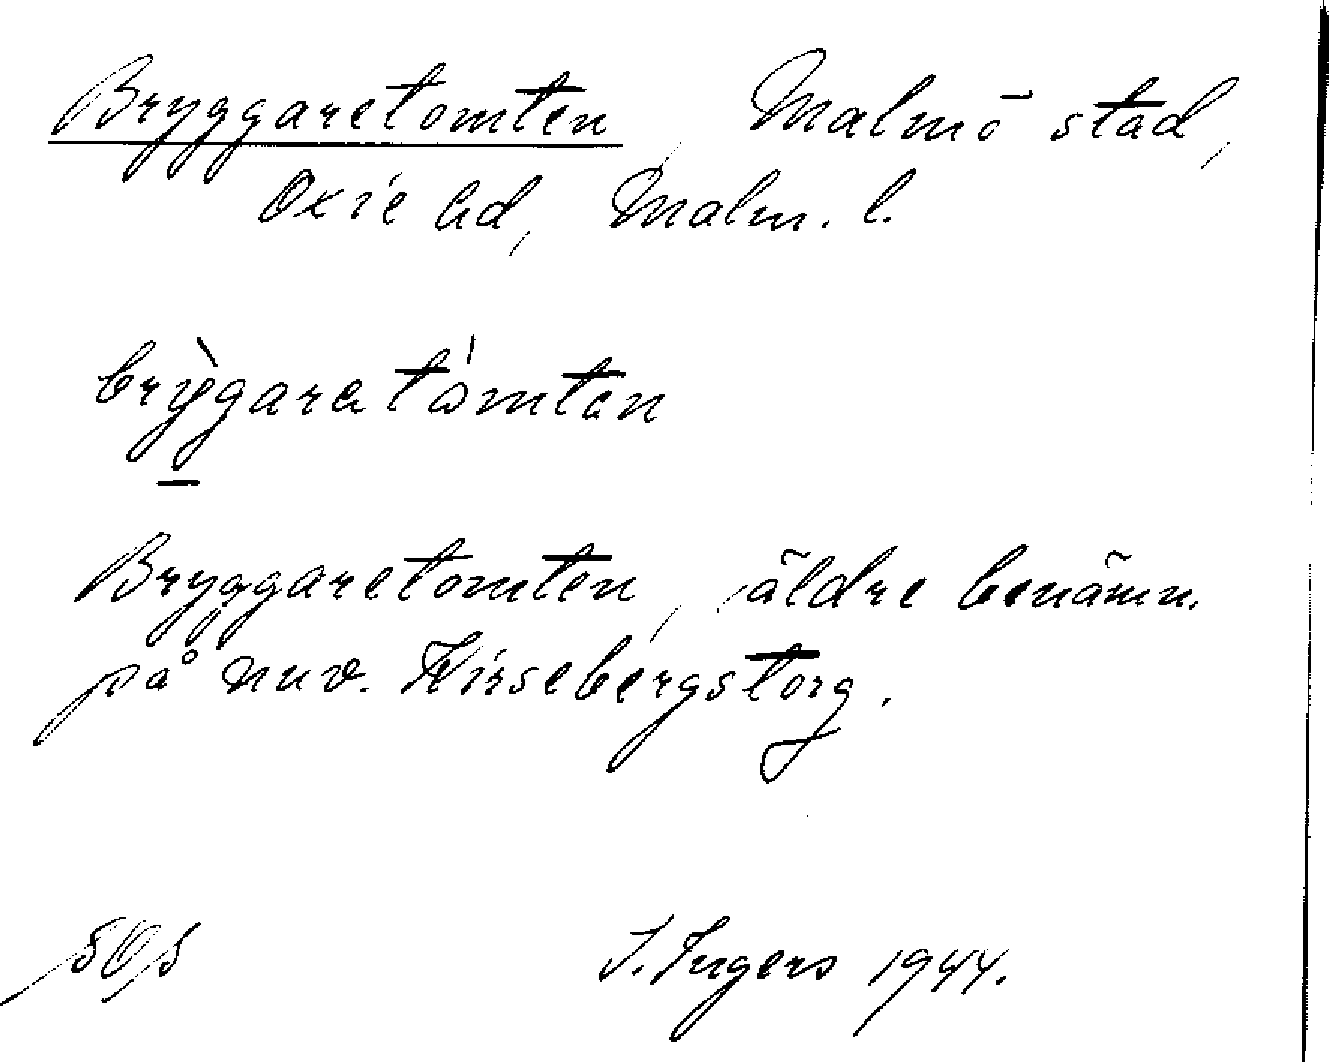 Bryggaretomten, Malmö stad,
Oxie hd, Malm. l.
brỳgaratómtan
Bryggaretomten, äldre benämn.
på nuv. Kirsebergstorg.
I. Ingers 1944.